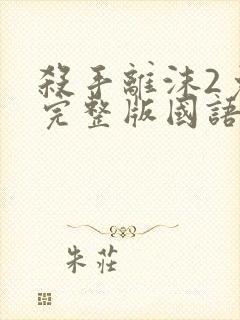 殺手離沫2
完整版國語
朱莊